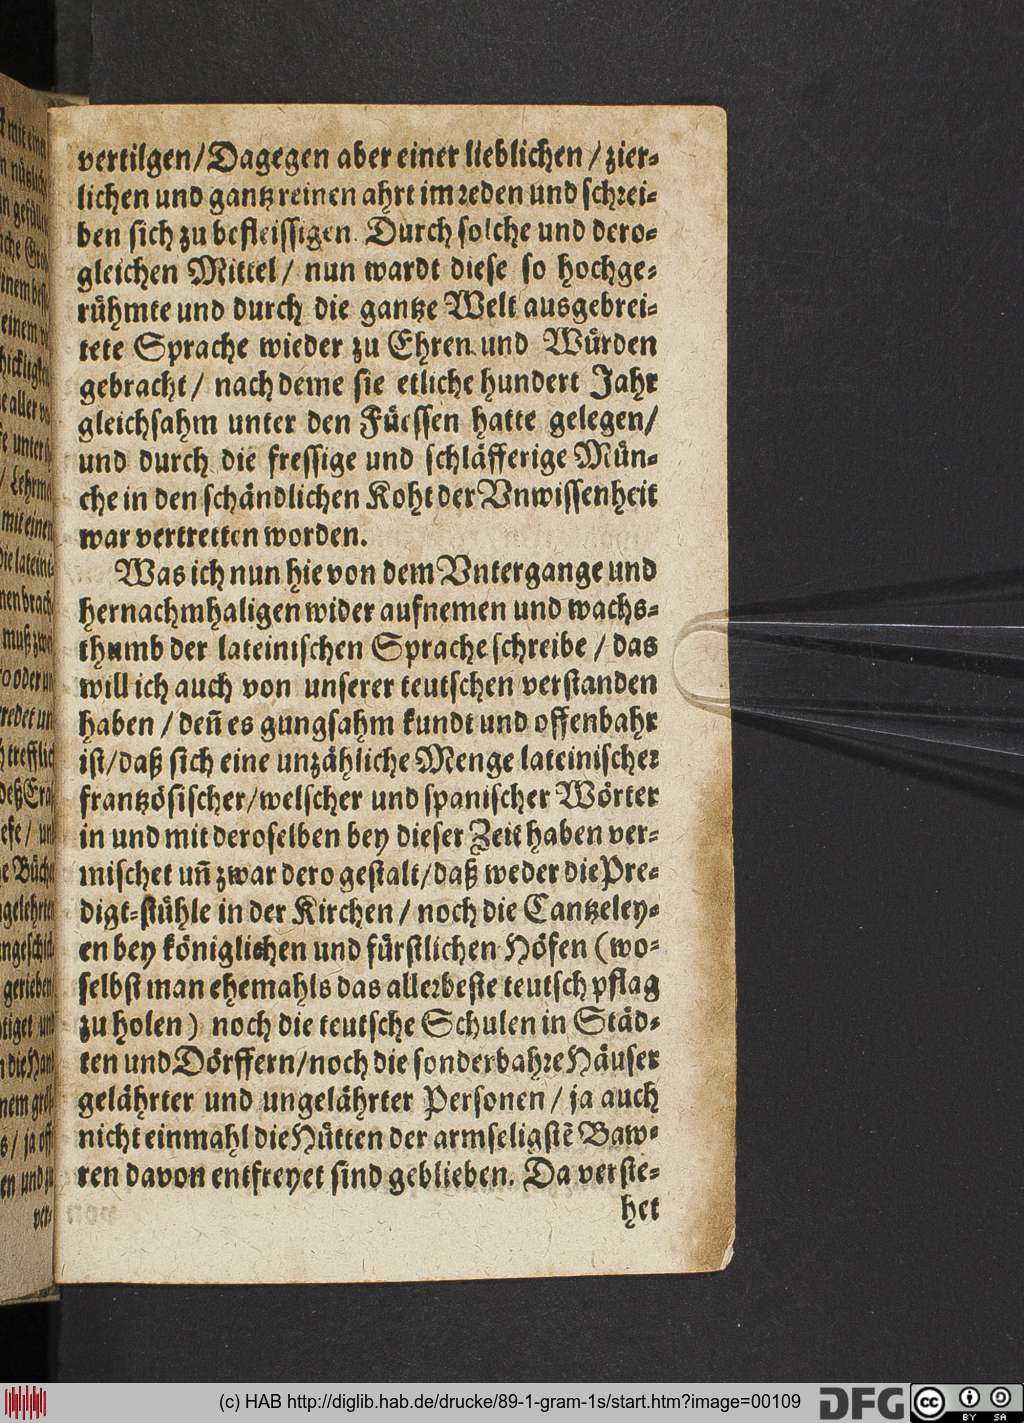 vertilgen/Dagegen aber einer lieblichen / zier-
lichen und gantz reinen ahrt im reden und schrei-
ben sich zu befleissigen. Durch solche und dero-
gleichen Mittel / nun wardt diese so hochge-
rühmte und durch die gantze Welt ausgebrei-
tete Sprache wieder zu Ehren und Würden
gebracht / nach deme sie etliche hundert Jahr
gleichsahm unter den Füessen hatte gelegen/
und durch die fressige und schläfferige Mün-
che in den schändlichen Koht der Vnwissenheit
war vertretten worden.
Was ich nun hie von dem Vntergange und
hernachmhaligen wider aufnemen und wachs-
thumb der lateinischen Sprache schreibe / das
will ich auch von unserer teutschen verstanden
haben / deñ es gungsahm kundt und offenbahr
ist/daß sich eine unzähliche Menge lateinischer
frantzösischer/welscher und spanischer Wörter
in und mit deroselben bey dieser Zeit haben ver-
mischet uñ zwar dero gestalt/daß weder die Pre-
digt-stühle in der Kirchen / noch die Cantzeley-
en bey königlichen und fürstlichen Höfen (wo-
selbst man ehemahls das allerbeste teutsch pflag
zu holen) noch die teutsche Schulen in Städ-
ten und Dörffern/noch die sonderbahre Häuser
gelährter und ungelährter Personen / ja auch
nicht einmahl die Hütten der armseligstẽ Baw-
ren davon entfreyet sind geblieben. Da verste-
het
(c) HAB http://diglib.hab.de/drucke/89-1-gram-1s/start.htm?image=00109
DFG
cc
BY SA